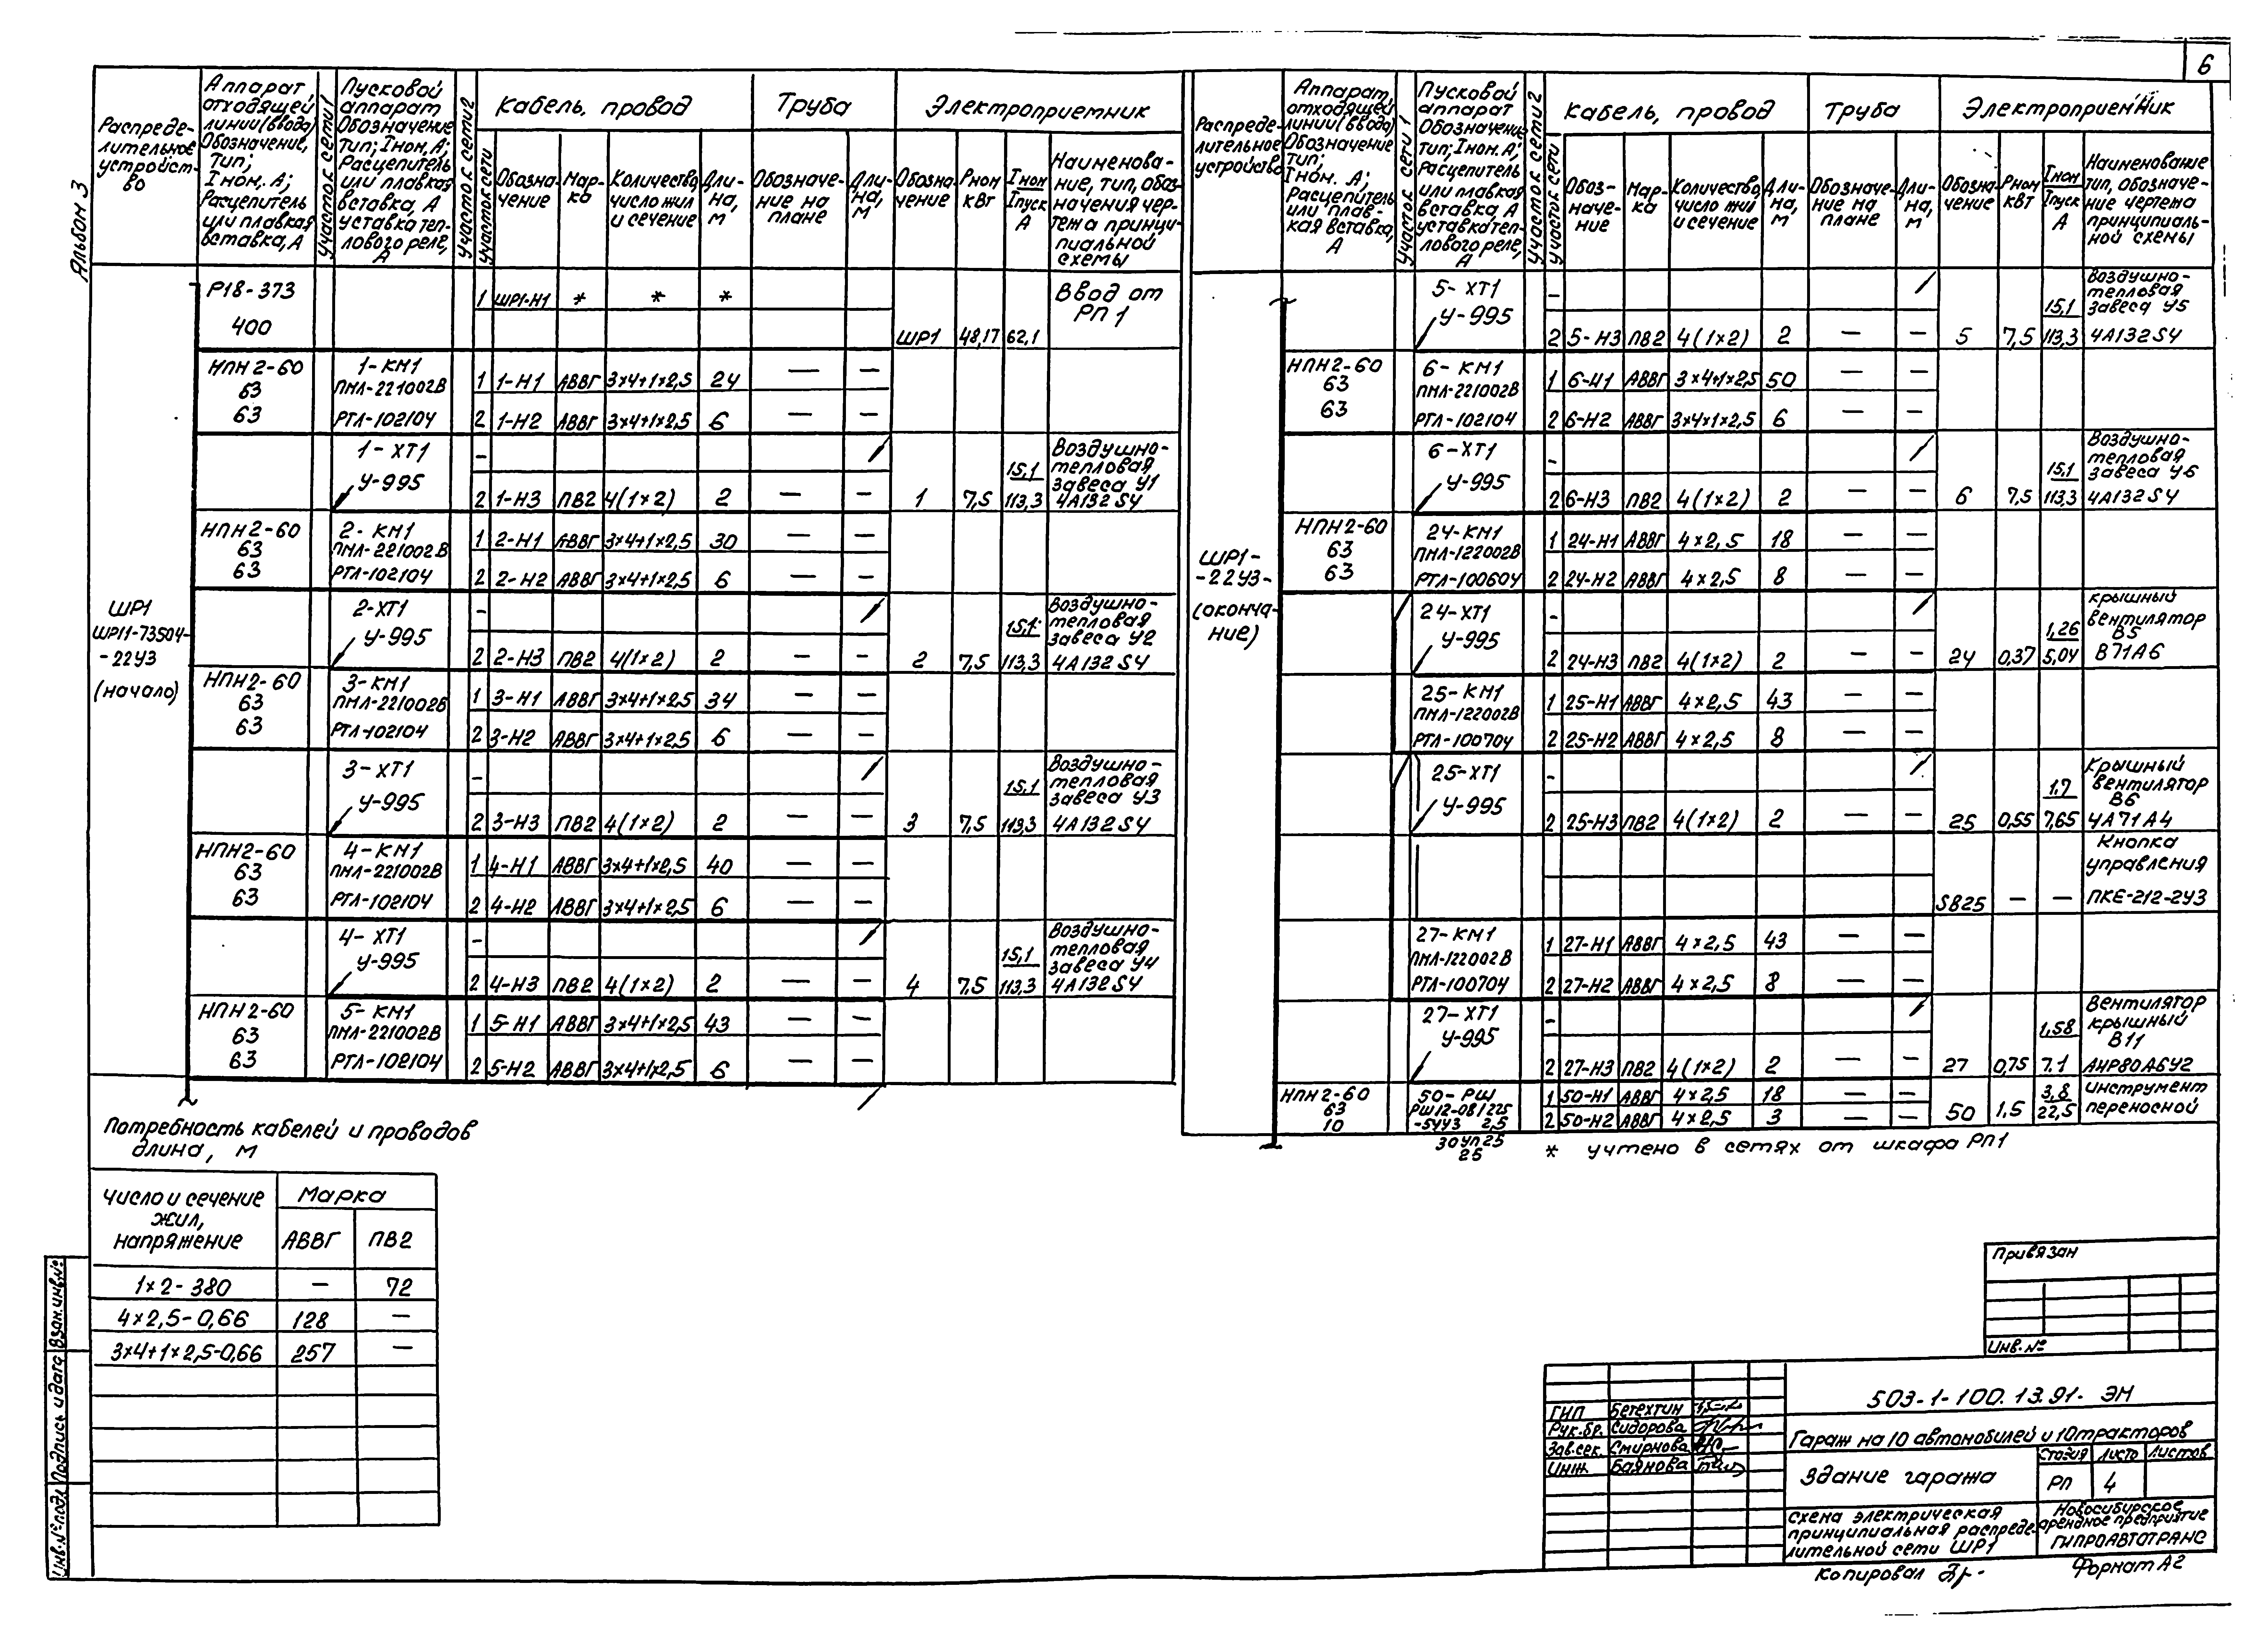 6
Альбом 3
Распреде-
лительное
устройст-
во
Аппарат
отходящей
линии (ввода)
Обозначение,
Тип;
Iном. А;
Расцепитель
или плавкая
вставка, А
Участок сети 1
Пусковой
аппарат
Обозначение
тип; Iном, А;
Расцепитель
или плавкая
вставка, А
уставка теп-
лового реле,
А
Участок сети 2
Участок сети
Кабель, провод
Обозна-
чение
Мар-
ка
Количество,
число жил
и сечение
Дли-
на,
м
Труба
Обозначе-
ние на
плане
Дли-
на,
м
Электроприемник
Обозна-
чение
Рном
кВт
Iном
Iпуск
А
Наименова-
ние, тип, обоз-
начения чер-
тежа принци-
пиальной
схемы
ШР1
ШР11-73504-
-22У3
(начало)
Р18-373
400
1 ШР1-Н1 * * *
Ввод от
РП 1
ШР1 48,17 62,1
НПН2-60
63
63
1-КМ1
ПМЛ-221002В
РТЛ-102104
1 1-Н1 АВВГ 3×4+1×2,5 24 — —
2 1-Н2 АВВГ 3×4+1×2,5 6 — —
1-ХТ1
У-995
-
2 1-Н3 ПВ2 4(1×2) 2 — — 1 7,5 15,1 113,3
Воздушно-
тепловая
завеса У1
4А132S4
НПН2-60
63
63
2-КМ1
ПМЛ-221002В
РТЛ-102104
1 2-Н1 АВВГ 3×4+1×2,5 30 — —
2 2-Н2 АВВГ 3×4+1×2,5 6 — —
2-ХТ1
У-995
-
2 2-Н3 ПВ2 4(1×2) 2 — — 2 7,5 15,1 113,3
Воздушно-
тепловая
завеса У2
4А132S4
НПН2-60
63
63
3-КМ1
ПМЛ-221002В
РТЛ-102104
1 3-Н1 АВВГ 3×4+1×2,5 34 — —
2 3-Н2 АВВГ 3×4+1×2,5 6 — —
3-ХТ1
У-995
-
2 3-Н3 ПВ2 4(1×2) 2 — — 3 7,5 15,1 113,3
Воздушно-
тепловая
завеса У3
4А132S4
НПН2-60
63
63
4-КМ1
ПМЛ-221002В
РТЛ-102104
1 4-Н1 АВВГ 3×4+1×2,5 40 — —
2 4-Н2 АВВГ 3×4+1×2,5 6 — —
4-ХТ1
У-995
-
2 4-Н3 ПВ2 4(1×2) 2 — — 4 7,5 15,1 113,3
Воздушно-
тепловая
завеса У4
4А132S4
НПН2-60
63
63
5-КМ1
ПМЛ-221002В
РТЛ-102104
1 5-Н1 АВВГ 3×4+1×2,5 43 — —
2 5-Н2 АВВГ 3×4+1×2,5 6 — —
Распреде-
лительное
устройство
Аппарат
отходящей
линии (ввода)
Обозначение
тип;
Iном. А;
Расцепитель
или плав-
кая вставка,
А
Участок сети 1
Пусковой
аппарат
Обозначение
тип; Iном. А;
Расцепитель
или плавкая
вставка, А
уставка теп-
лового реле,
А
Участок сети 2
Участок сети
Кабель, провод
Обоз-
наче-
ние
Мар-
ка
Количество,
число жил
и сечение
Дли-
на,
м
Труба
Обозначе-
ние на
плане
Дли-
на,
м
Электроприемник
Обозна-
чение
Рном
кВт
Iном
Iпуск
А
Наименование
тип, обозначе-
ние чертежа
принципиаль-
ной схемы
ШР1-
-22У3-
(оконча-
ние)
5-ХТ1
У-995
-
2 5-Н3 ПВ2 4(1×2) 2 — — 5 7,5 15,1 113,3
Воздушно-
тепловая
завеса У5
4А132S4
НПН2-60
63
63
6-КМ1
ПМЛ-221002В
РТЛ-102104
1 6-Н1 АВВГ 3×4+1×2,5 50 — —
2 6-Н2 АВВГ 3×4×1×2,5 6 — —
6-ХТ1
У-995
-
2 6-Н3 ПВ2 4(1×2) 2 — — 6 7,5 15,1 113,3
Воздушно-
тепловая
завеса У6
4А132S4
НПН2-60
63
63
24-КМ1
ПМЛ-122002В
РТЛ-100604
1 24-Н1 АВВГ 4×2,5 18 — —
2 24-Н2 АВВГ 4×2,5 8 — —
24-ХТ1
У-995
-
2 24-Н3 ПВ2 4(1×2) 2 — — 24 0,37 1,26 5,04
крышный
вентилятор
В5
В71А6
25-КМ1
ПМЛ-122002В
РТЛ-100704
1 25-Н1 АВВГ 4×2,5 43 — —
2 25-Н2 АВВГ 4×2,5 8 — —
25-ХТ1
У-995
-
2 25-Н3 ПВ2 4(1×2) 2 — — 25 0,55 1,7 7,65
Крышный
вентилятор
В6
4А71А4
SВ25 — —
Кнопка
управления
ПКЕ-212-2У3
27-КМ1
ПМЛ-122002В
РТЛ-100704
1 27-Н1 АВВГ 4×2,5 43 — —
2 27-Н2 АВВГ 4×2,5 8 — —
27-ХТ1
У-995
-
2 27-Н3 ПВ2 4(1×2) 2 — — 27 0,75 1,58 7.1
Вентилятор
крышный
В11
АИР80А6У2
НПН2-60
63
10
50-РШ
РШ12-08/225
-54У3 2,5
30УП25
25
1 50-Н1 АВВГ 4×2,5 18 — —
2 50-Н2 АВВГ 4×2,5 3 — — 50 1,5 3,8 22,5
инструмент
переносной
* учтено в сетях от шкафа РП1
Потребность кабелей и проводов
длина, м
Число и сечение
жил,
напряжение
Марка
АВВГ ПВ2
1×2-380 — 72
4×2,5-0,66 128 —
3×4+1×2,5-0,66 257 —
Взам.инв.№
Подпись и дата
Инв.№подл
Привязан
Инв.№
ГИП Бетехтин
Рук.бр. Сидорова
Зав.сек. Смирнова
Инж Баянова
503-1-100.13.91- ЭМ
Гараж на 10 автомобилей и 10тракторов
Здание гаража
Стадия Листо Листов
РП 4
Схема электрическая
принципиальная распреде-
лительной сети ШР1
Новосибирское
арендное предприятие
ГИПРОАВТОТРАНС
Копировал
Формат А2